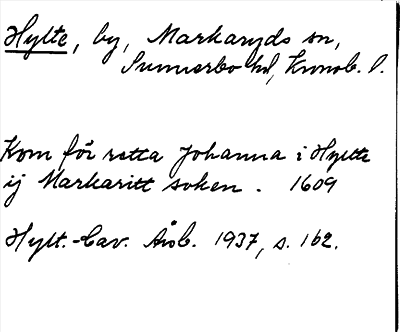 Hylte, by, Markaryds sn,
Sunnerbo hd, Kronob. l.
Kom för retta Johanna i Hyltte
ij Markaritt soken. 1609
Hylt.-Cav. Årsb. 1937, s. 162.